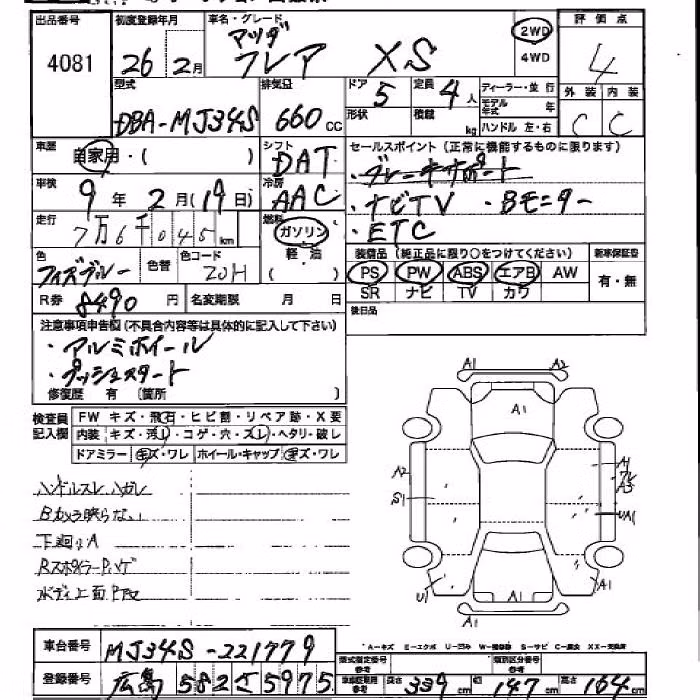 出品番号 初度登録年月 車名・グレード 評価点
4081 26年 2月 マツダ フレア XS 2WD 4WD 4
型式 排気量 ドア 定員 ディーラー・並行 外装 内装
DBA-MJ34S 660cc 5 4人 モデル年式 年 C C
形状 積載 kg ハンドル 左・右
車歴 自家用・( ) シフト DAT セールスポイント(正常に機能するものに限ります)
・ブレーキサポート
車検 9年 2月(19日) 冷房 AAC ・ナビTV ・Bモニター
・ETC
走行 7万6千045km 燃料 ガソリン 軽油
装備品(純正品に限り○をつけてください) 新車保証書
色 色替 色コード ZJH PS PW ABS エアB AW 有・無
SR ナビ TV カワ
R券 8490円 名変期限 月 日 後日品
注意事項申告欄(不具合内容等は具体的に記入して下さい)
・アルミホイール
・プッシュスタート
修復歴 有(箇所 )
検査員記入欄 FW キズ・飛石・ヒビ割・リペア跡・X要
内装 キズ・汚レ・コゲ・穴・スレ・ヘタリ・破レ
ドアミラー キズ・ワレ ホイール・キャップ キズ・ワレ
ハンドルスレ、ハガレ
Bカメラ映らない
下廻りA
A1 A2
A1
A2 A1
S1
U1
U1 A1
A1
A-キズ E-エクボ U-凹み W-補修跡 S-サビ C-腐食 XX-交換済
車台番号 MJ34S-221779
型式指定番号 類別区分番号
登録番号 広島 582 さ 5975
長さ 339cm 幅 147cm 高さ 164cm